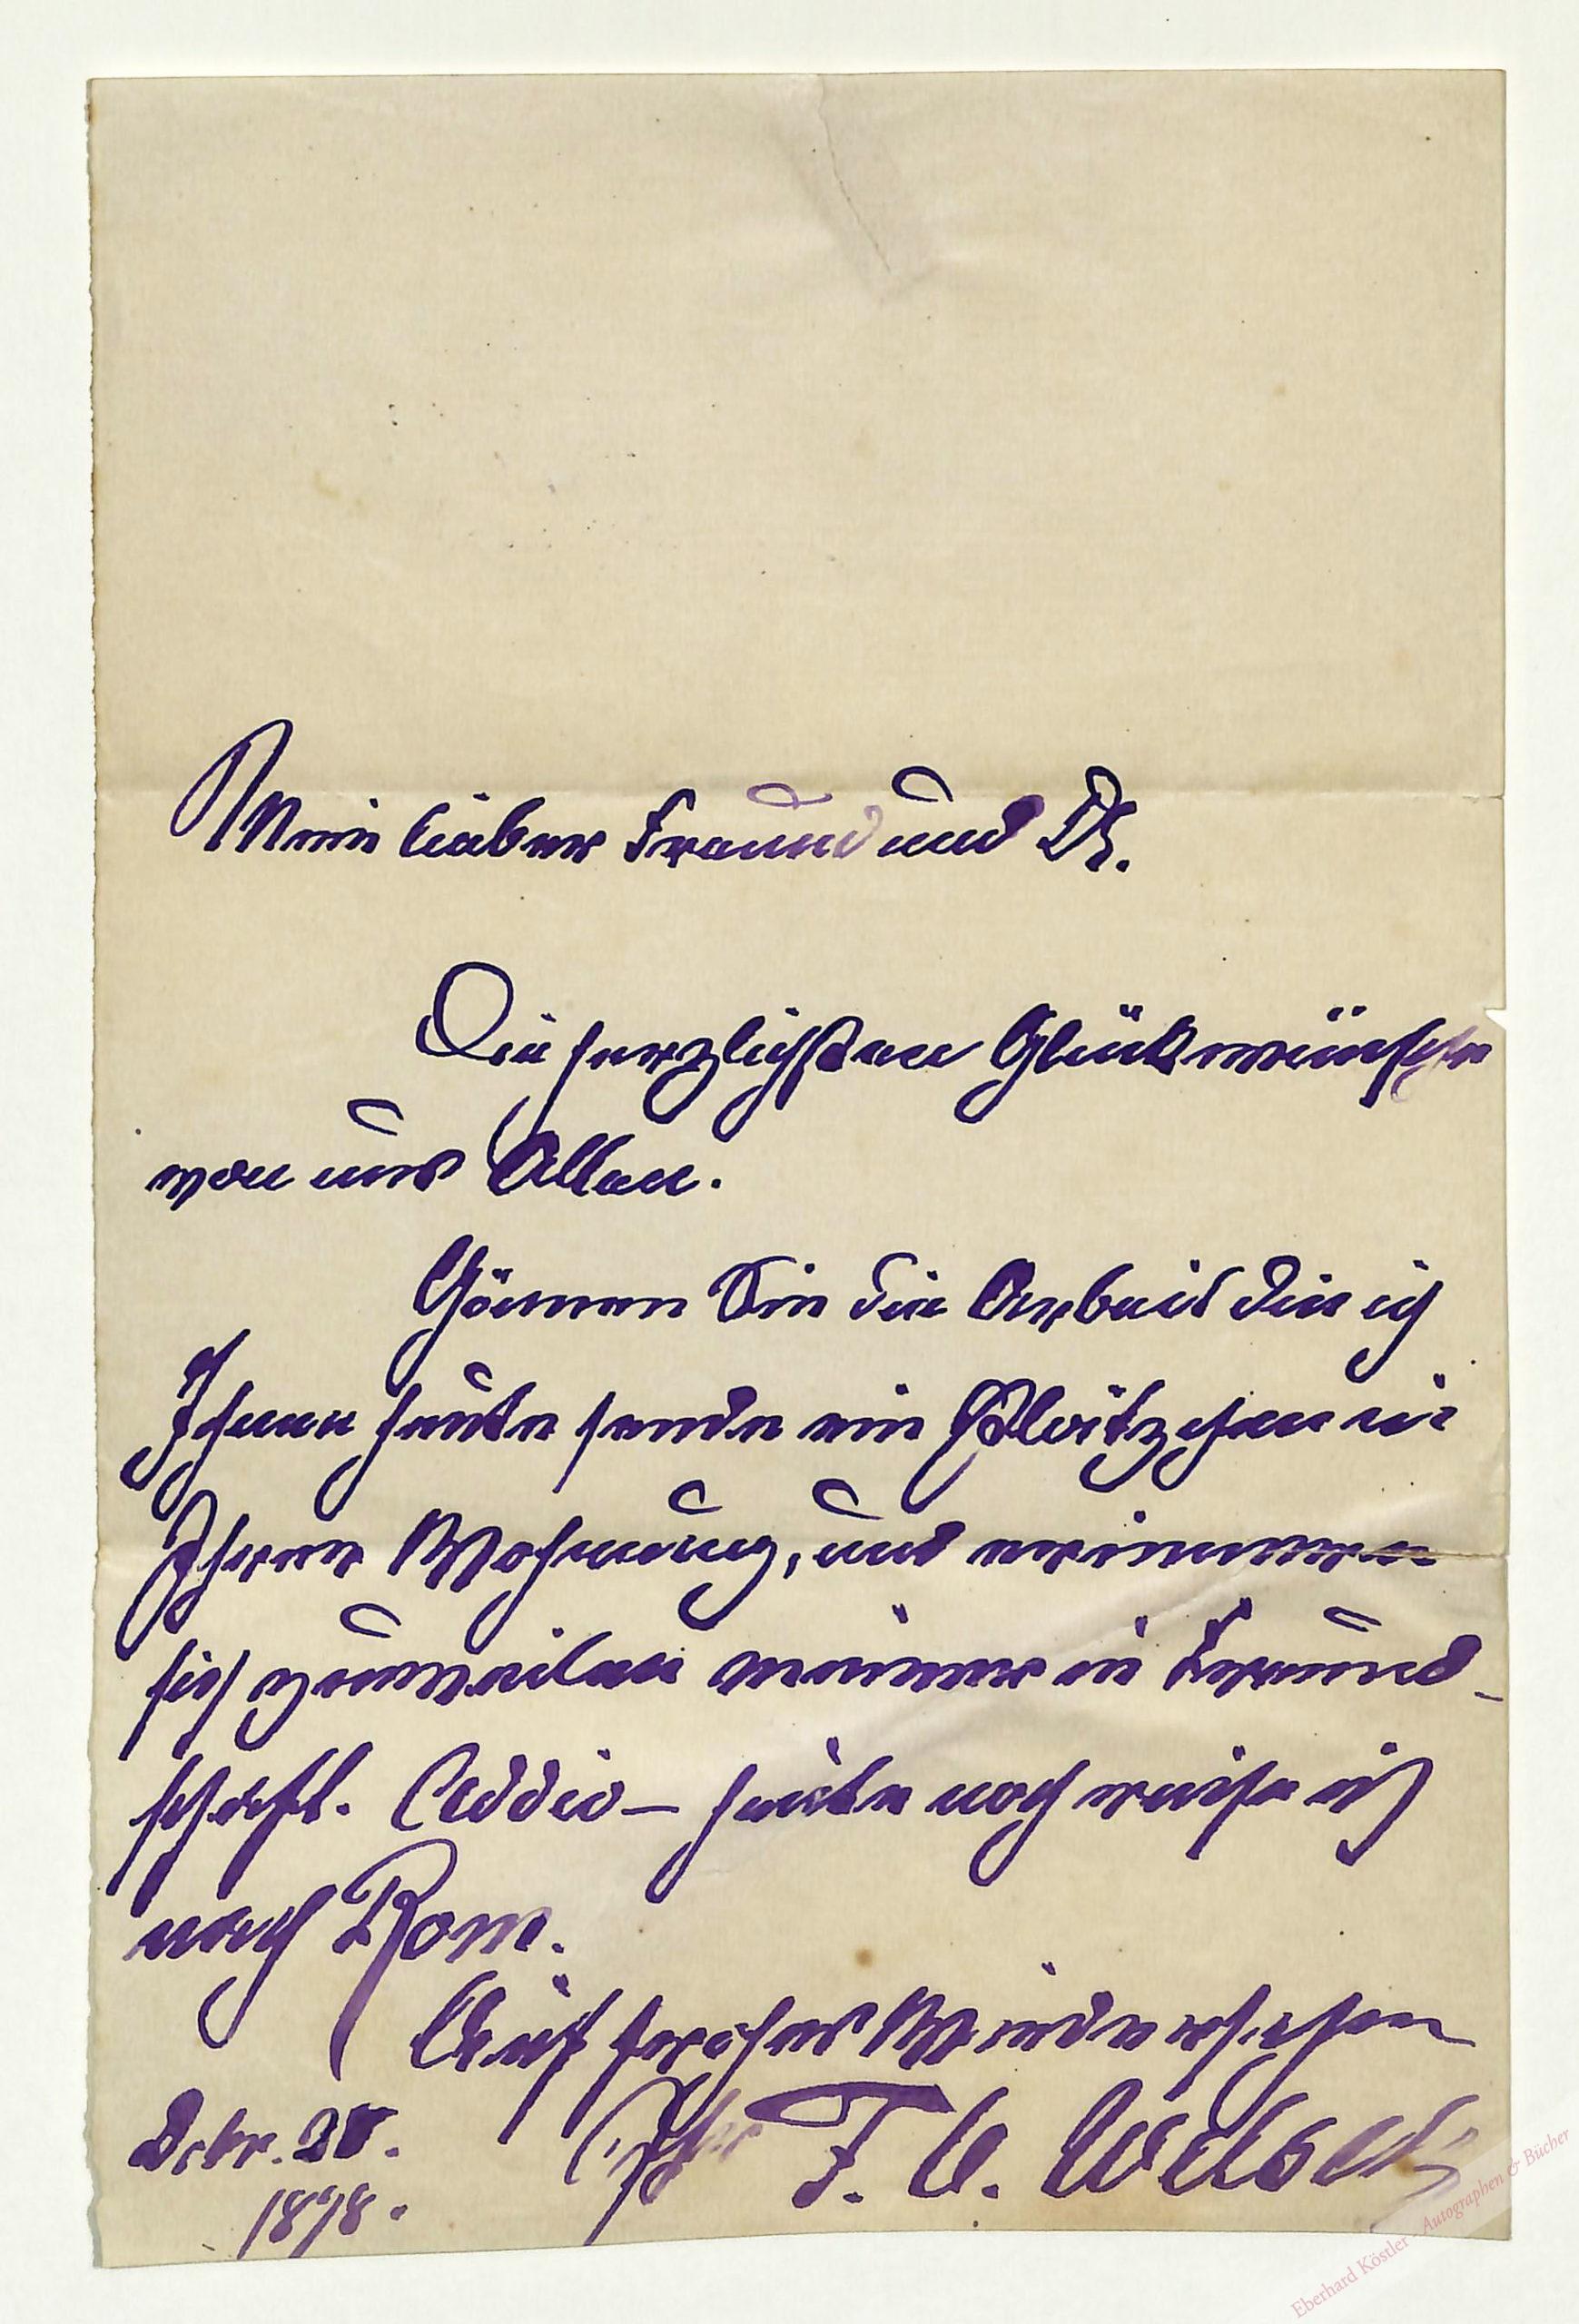 Mein lieber Freund und Dr.
Die herzlichsten Glückwünsche
von uns Allen.
Gönnen Sie die Arbeit die ich
Ihnen heute sende ein Plätzchen in
Ihrer Wohnung, und erinnern
sich zuweilen meiner in Freund-
schaft. Addio – heute noch reise ich
nach Rom.
Auf frohes Wiedersehen
Ihr F. v.
Dcbr.
1898.
Eberhard Köstler - Autographen & Bücher